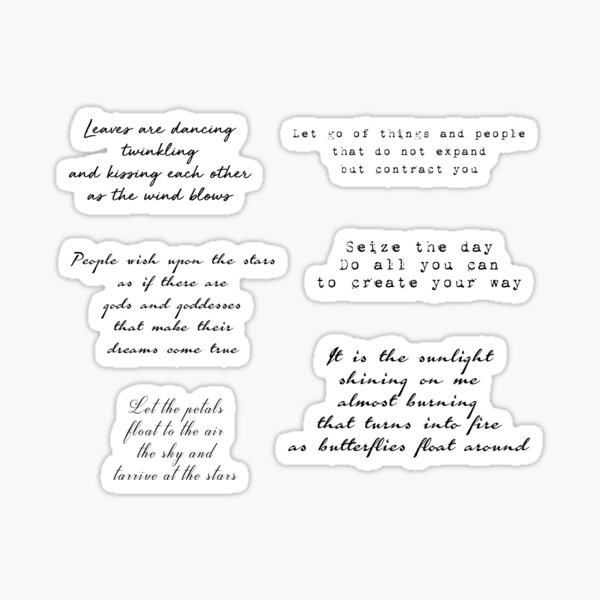 Leaves are dancing
twinkling
and kissing each other
as the wind blows
Let go of things and people
that do not expand
but contract you
People wish upon the stars
as if there are
gods and goddesses
that make their
dreams come true
Seize the day
Do all you can
to create your way
Let the petals
float to the air
the sky and
tarrive at the stars
It is the sunlight
shining on me
almost burning
that turns into fire
as butterflies float around